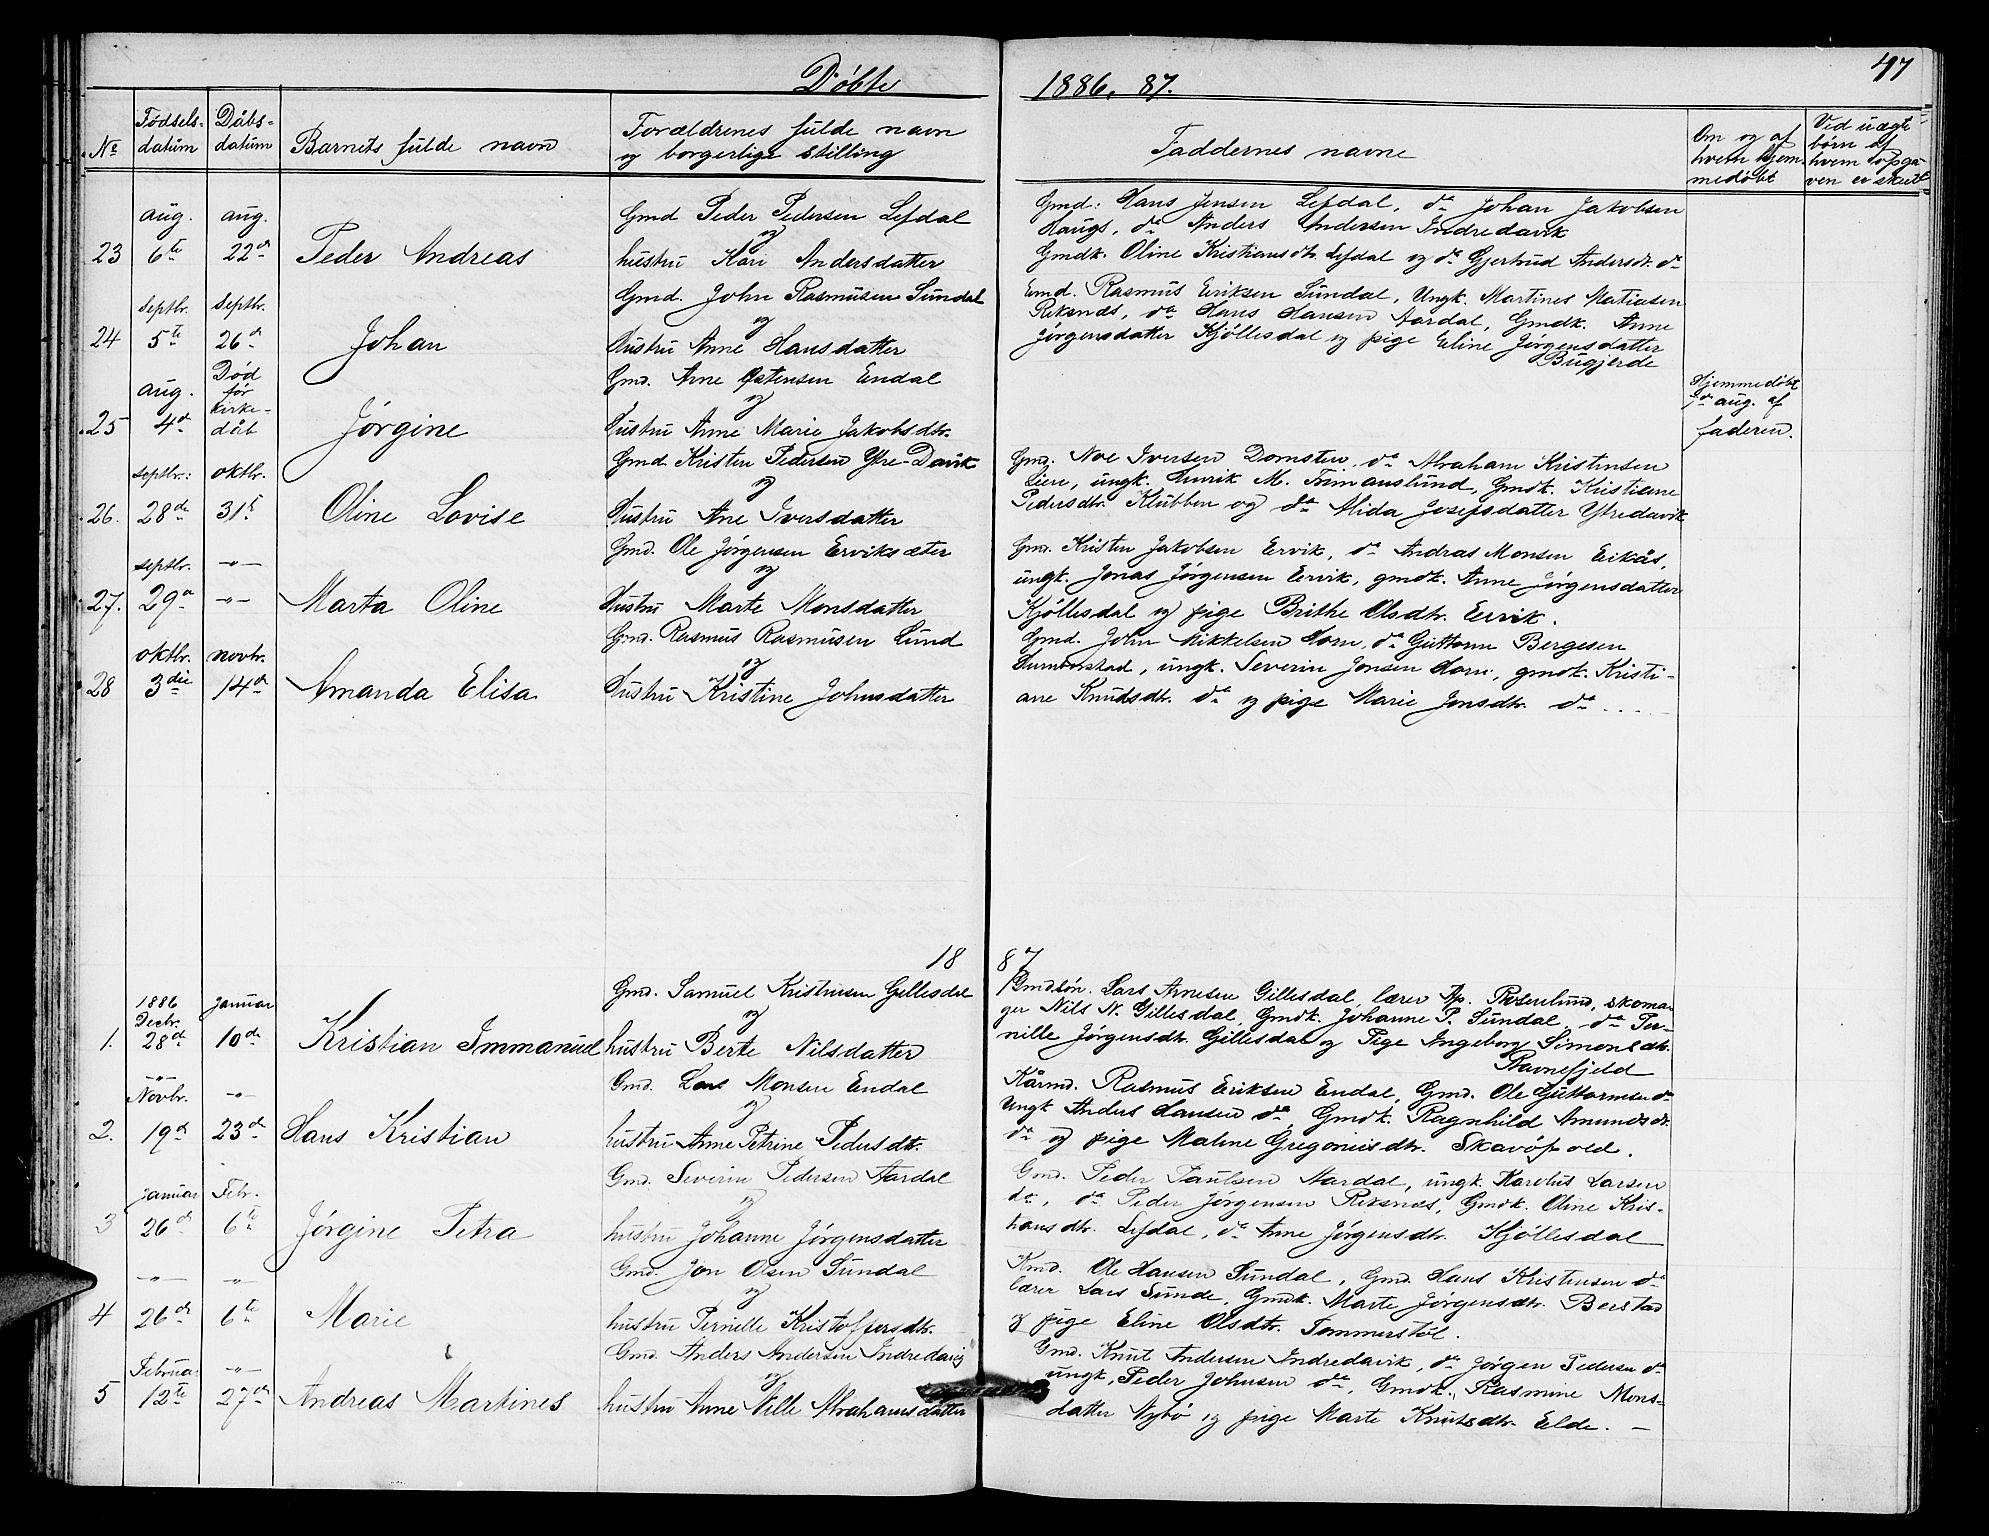 Døbte
1886, 87.
47
No
Fødsels-
datum
Dåbs-
datum
Barnets fulde navn
Forældrenes fulde navn
og borgerlige stilling
Faddernes navne
Om og af
hvem hjem-
medøbt
Ved uægte
børn af
hvem opga-
ven er skeet
aug.
aug.
23
6te
22de
Peder Andreas
Gmd Peder Pedersen Lefdal
og
hustru Kari Andersdatter
Gmd: Hans Jensen Lefdal, do Johan Jakobsen
Haugs, do Anders Andersen Indredavik
Gmdk. Oline Kristiansdtr. Lefdal og do Gjertrud Andersdr. do
Septbr.
Septbr.
24
5te
26de
Johan
Gmd. John Rasmusen Sundal
og
Hustru Anne Hansdatter
Emd. Rasmus Eriksen Sundal, Ungk. Martines Matiasen
Reksnes, do Hans Hansen Aardal, Gmdk. Anne
Jørgensdatter Kjøllesdal og pige Eline Jørgensdatter
Bugjerde
aug.
Død
før
kirke-
dåb
25
4de
Jørgine
Gmd. Arne Østensen Endal
og
Hustru Anne Marie Jakobsdtr.
Hjemmedøbt
7de aug. af
faderen.
septbr.:
oktbr.
26.
28de
31te
Oline Lovise
Gmd Kristen Pedersen Ytre-Davik
og
Hustru Ane Iversdatter
Gmd. Noe Iversen Domsten, do Abraham Kristensen
Lien, ungk. Henrik M. Frimanslund, Gmdk. Kristiane
Pedersdtr. Klubben og do Alida Josefsdatter Ytredavik
septbr.
-"-
27.
29de
-"-
Marta Oline
Gmd. Ole Jørgensen Erviksæter
og
Hustru Marte Monsdatter
Gmd. Kristen Jakobsen Ervik, do Andras Monsen Eikås,
ungk. Jonas Jørgensen Ervik, gmdk. Anne Jørgensdatter
Kjøllesdal og pige Brithe Olsdtr. Ervik.
oktbr.
novbr.
28
3die
14de
Amanda Elisa
Gmd. Rasmus Rasmusen Lund
og
Hustru Kristine Johnsdatter
Gmd. John Mikkelsen Horn, do Guttorm Bergesen
Humborstad, ungk. Severin Jonsen Horn, gmdk. Kristi-
ane Knudsdtr. do og pige Marie Jonsdtr. do
18
87
1886
Decbr.
Januar
1.
28de
10de
Kristian Immanuel
Gmd. Samuel Kristensen Gillesdal
og
hustru Berte Nilsdatter
Gmdsøn. Lars Arnesen Gillesdal, lærer Ap. Rosenlund, skoma-
ger Nils N. Gillesdal, Gmdk. Johanne P. Sundal, do Per-
nille Jørgensdtr. Gillesdal og Pige Ingeborg Simonsdtr.
Ravnefjeld
-"-
Novbr.
-"-
2.
19de
23de
Hans Kristian
Gmd. Lars Monsen Endal
og
hustru Anne Petrine Pedersdtr.
Kårmd. Rasmus Eriksen Endal, Gmd. Ole Guttormsen do
Ungk Anders Hansen do, Gmdk. Ragnhild Amundsdr.
do og pige Maline Gregoriusdtr. Skavøpold.
Januar
Febr.
3
26de
6te
Jørgine Petra
Gmd. Severin Pedersen Aardal
og
hustru Johanne Jørgensdatter
Gmd. Peder Paulsen Aardal, ungk. Karolus Larsen
do, do Peder Jørgensen Reksnes, Gmdk. Oline Kris-
tiansdtr. Lefdal, do Anne Jørgensdtr. Kjøllesdal
-"-
-"-
4
26de
6te
Marie
Gmd. Jon Olsen Sundal
og
hustru Pernille Kristoffersdtr.
Kmd. Ole Hansen Sundal, Gmd. Hans Kristensen do
lærer Lars Sunde, Gmdk. Marte Jørgensdtr. Berstad
og pige Eline Olsdtr. Tommerstøl.
Februar
-"-
5
12te
27de
Andreas Martines
Gmd. Anders Andersen Indredavig
og
hustru Anne Nille Abrahamsdatter
Gmd. Knut Andersen Indredavik, do Jørgen Pedersen do
ungk, Peder Johnsen do, Gmdk. Rasmine Mons-
datter Nybø og pige Marte Knutsdtr. Elde. -